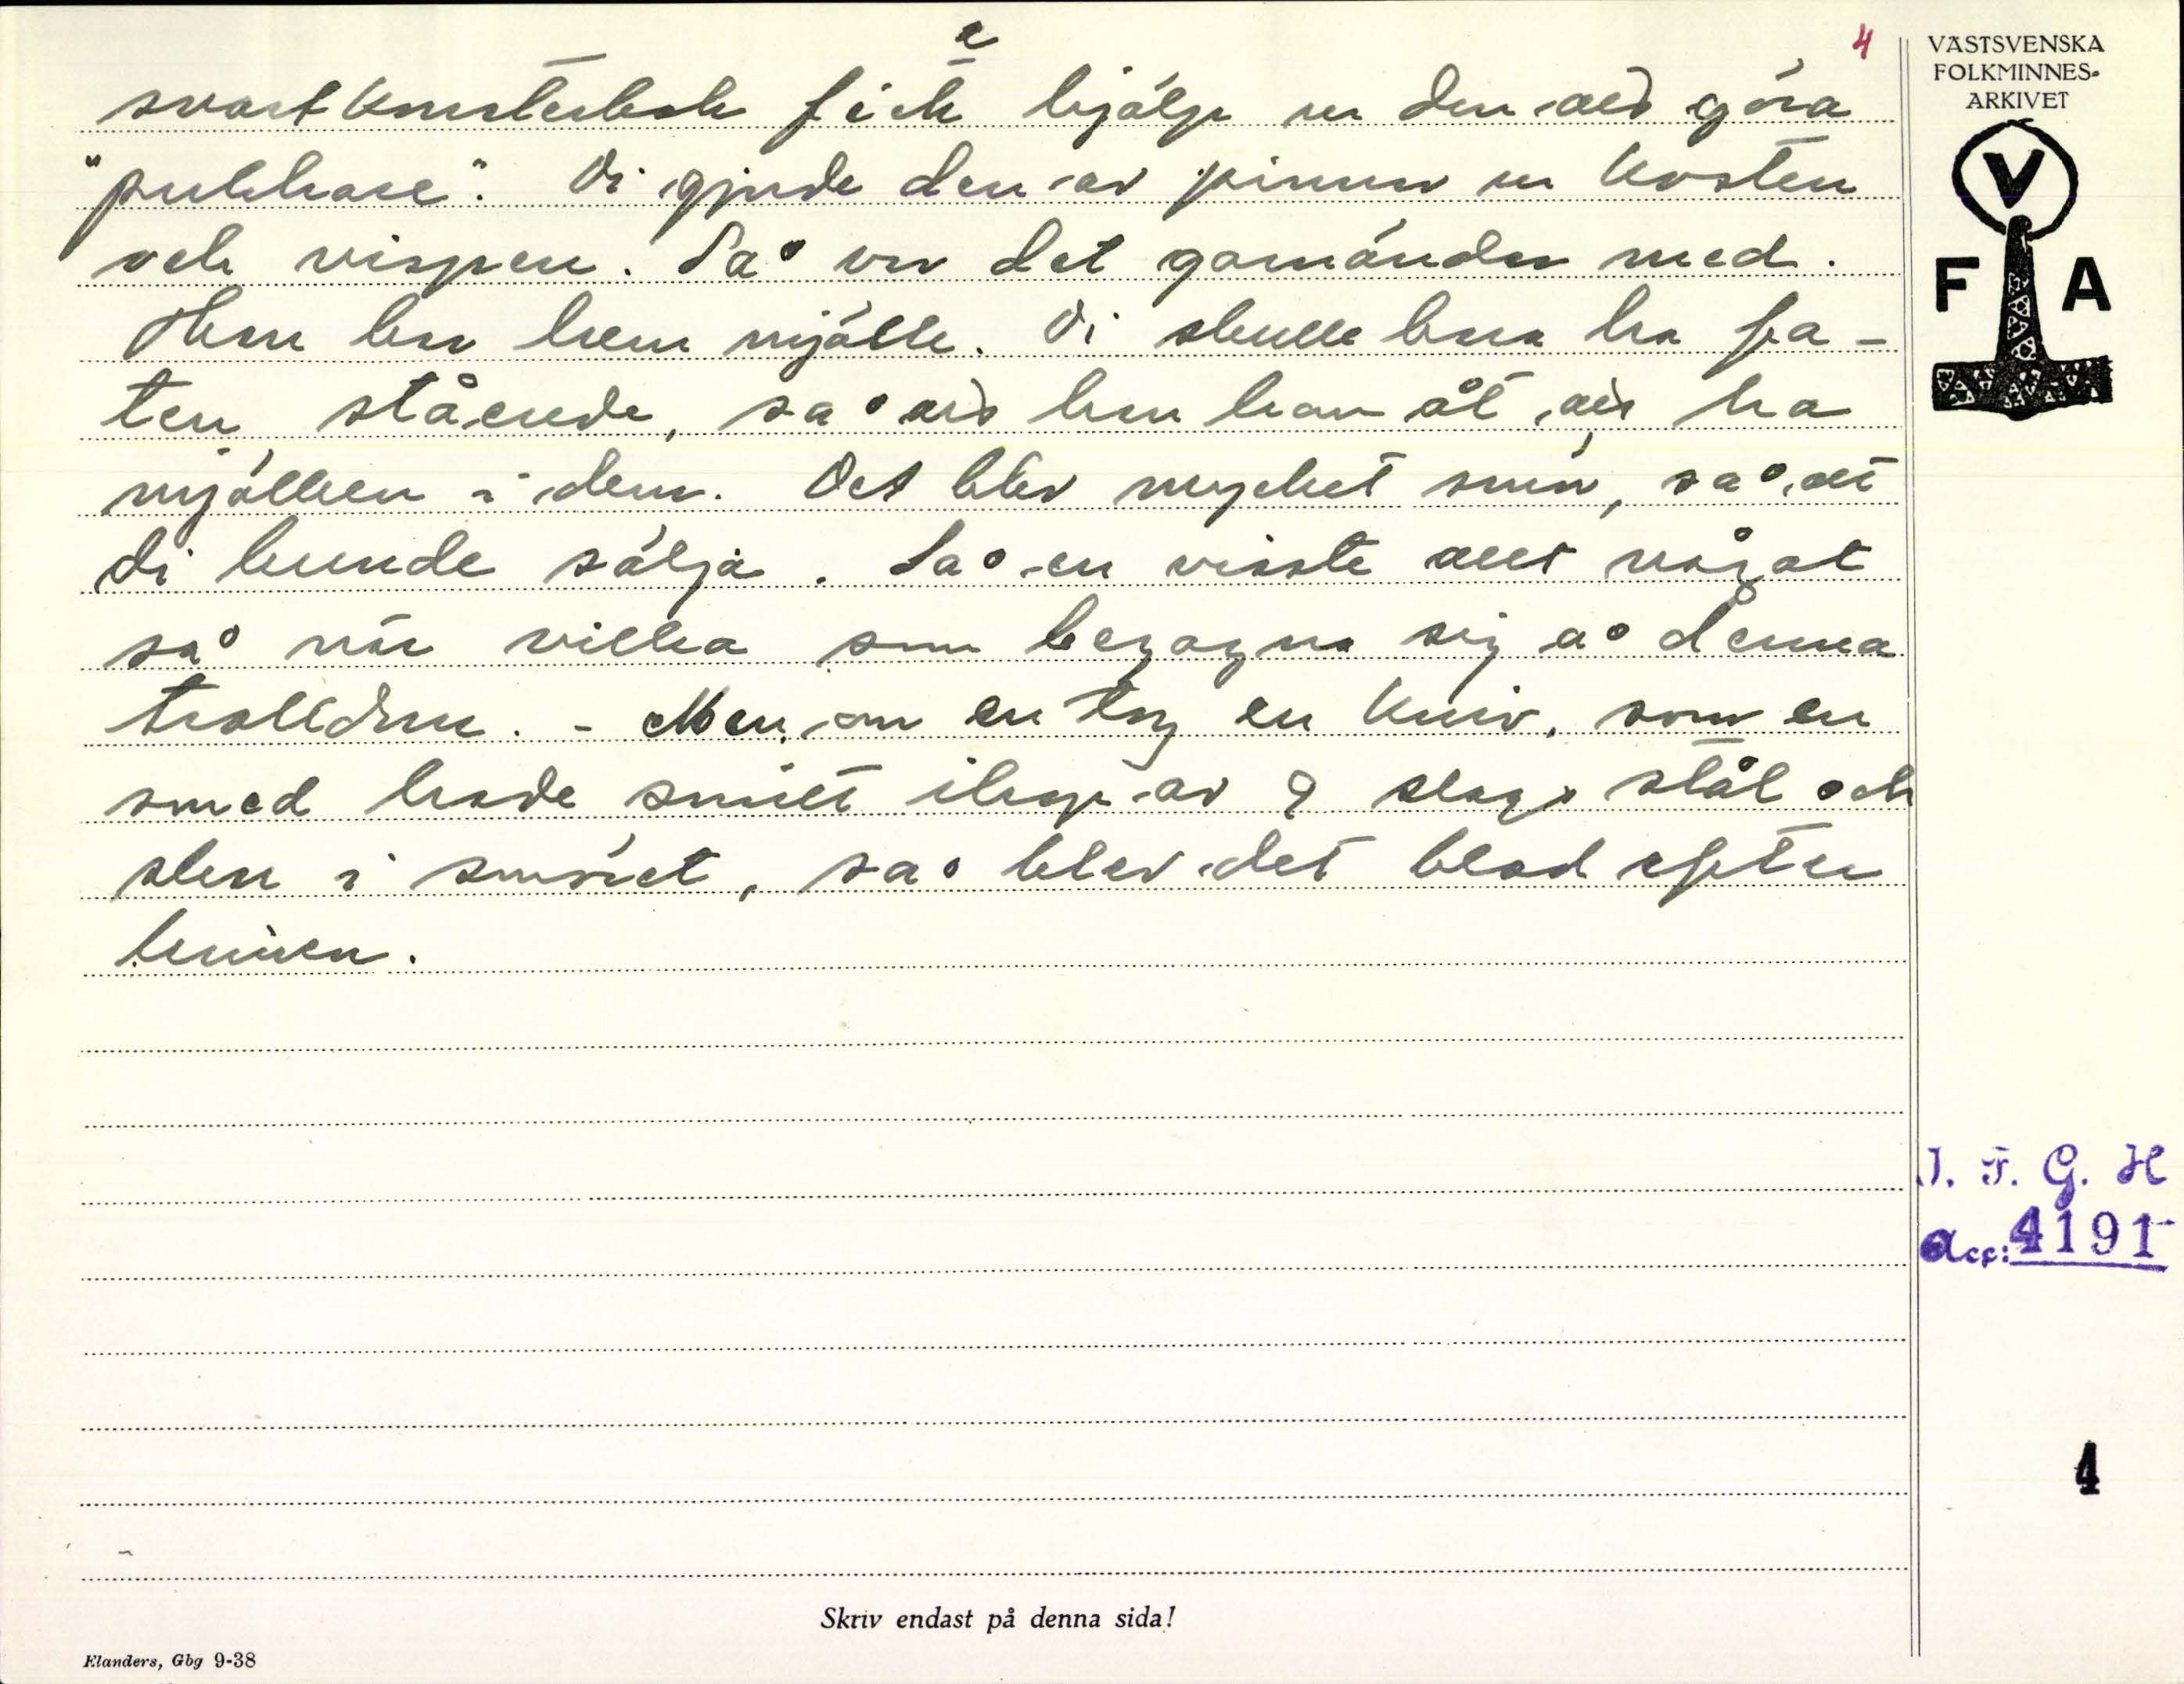 4
svartkonsterbok fick e hjälp ur den att göra
"pukhare". Di gjorde den av pinnar ur kosten
och vispen. Så var det gomänder med.
Hon bar hem mjölk. Di skulle bara ha fa-
ten stående, så att hon kom åt att ha
mjölken i dem. Det blev mycket smör, så att
di kunde sälja. Så en visste allt något
så när vilka som begagna sig å denna
trolldom. - Men om en tog en kniv, som en
smed hade smitt ihop av 9 slags stål och
skar i smöret, så blev det blod efter
kniven.
VÄSTSVENSKA
FOLKMINNES-
ARKIVET
V
F A
I. F. G. H
Acc: 4191
4
Skriv endast på denna sida!
Elanders, Gbg 9-38